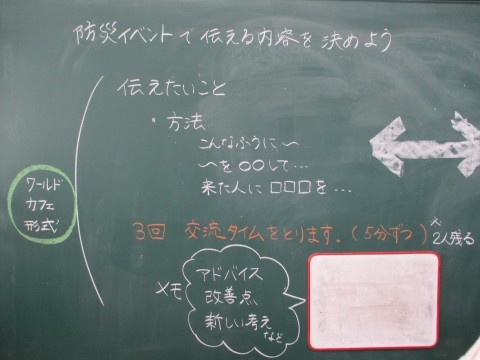 防災イベントで伝える内容を決めよう
伝えたいこと
・方法
こんなふうに〜
〜を○○して…
来た人に□□□を…
ワールド
カフェ
形式
3回 交流タイムをとります。(5分ずつ)
※2人残る
メモ
アドバイス
改善点
新しい考え
など